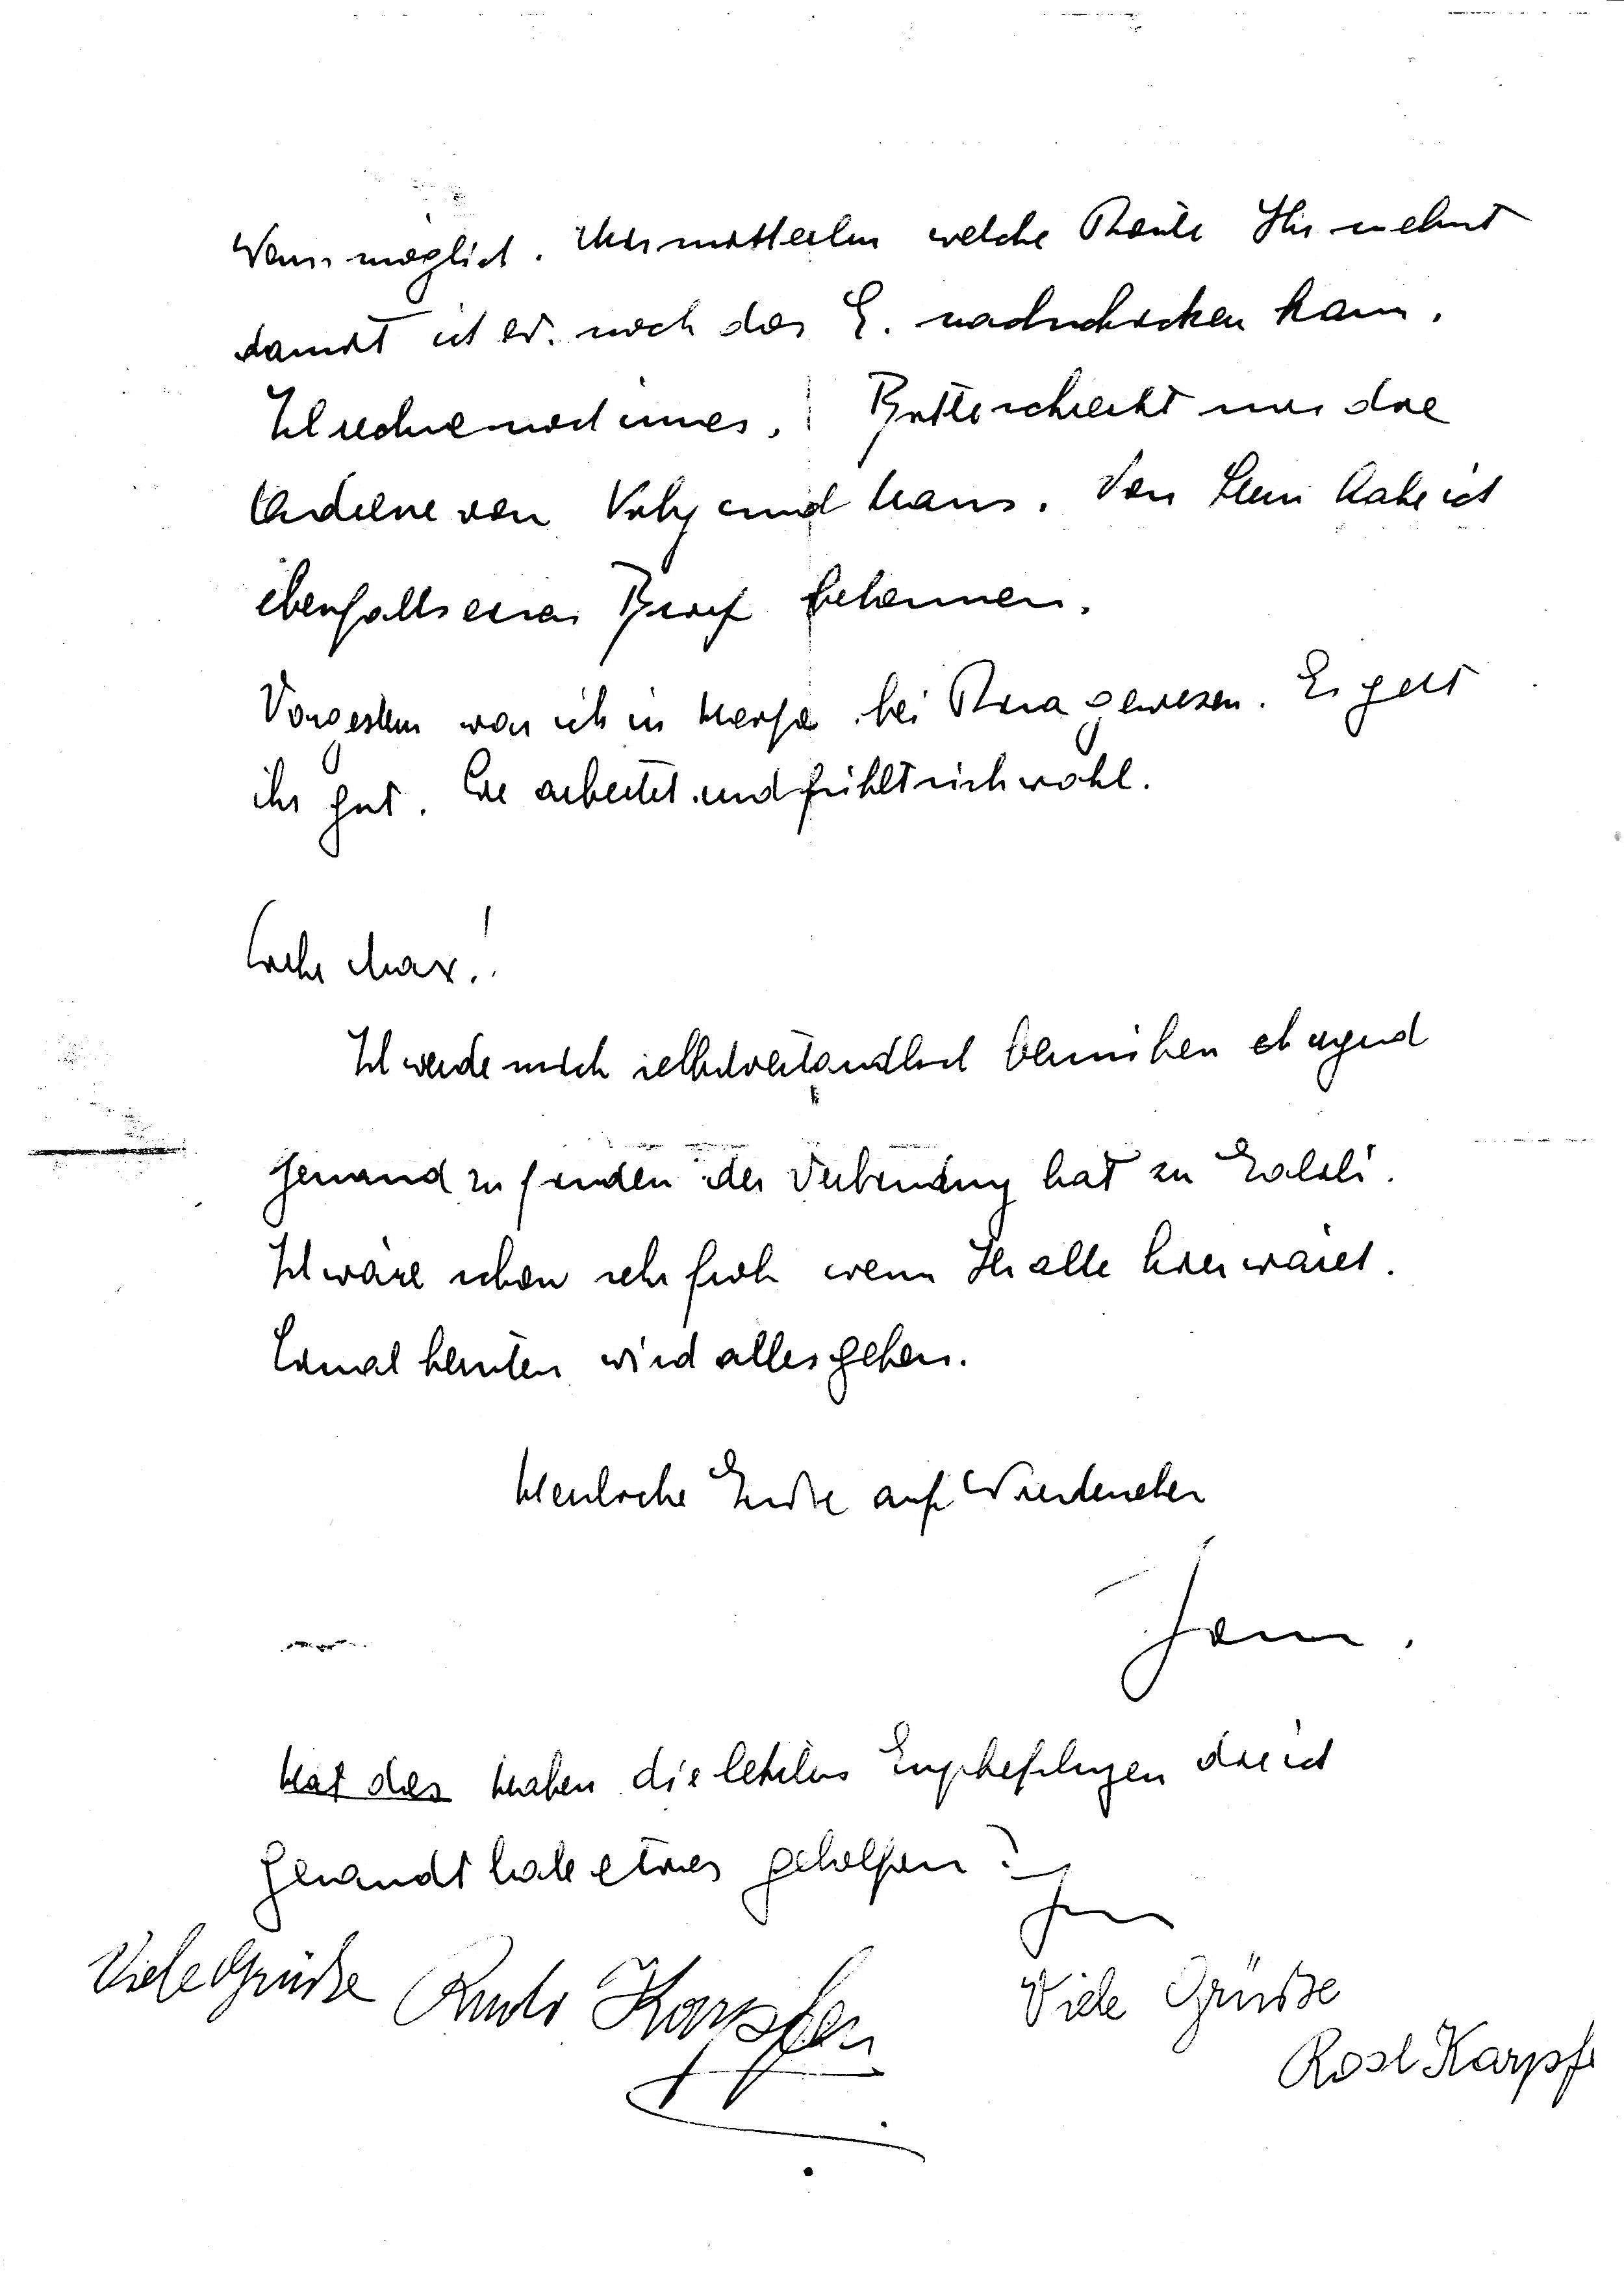 Wenn möglich. Mir mitteilen welche Route Ihr nehmt
damit ich ev. noch das G. nachschicken kann.
Ich rechne noch immer. Bitte schickt mir die
Adresse von und Hans. Von habe ich
ebenfalls einen Brief bekommen.
Vorgestern war ich in Haifa bei gewesen. Es geht
ihr gut. Sie arbeitet und fühlt sich wohl.
Lieber Max!
Ich werde mich selbstverständlich bemühen ob irgend
jemand zu finden der Verbindung hat zu
Ich wäre schon sehr froh wenn Ihr alle hier wäret.
Einmal herunten wird alles gehen.
Herzliche Grüße auf Wiedersehen
Hat das Haben die letzten Empfehlungen die ich
gesandt habe etwas geholfen?
Viele Grüße Rudi Karpfen
Viele Grüße
Rosl Karpf